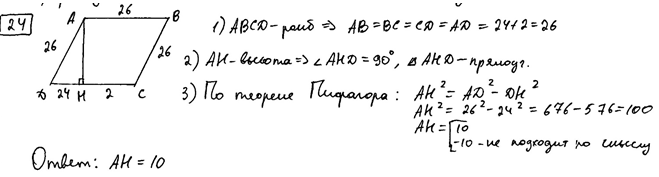 24
26
A
B
1) ABCD-ромб => AB=BC=CD=AD=24+2=26
26
26
2) AH-высота => ∠AHD=90°, △AHD-прямоуг.
D 24 H 2 C
3) По теореме Пифагора: AH²=AD²-DH²
AH²=26²-24²=676-576=100
AH=[10
-10-не подходит по смыслу
Ответ: AH=10